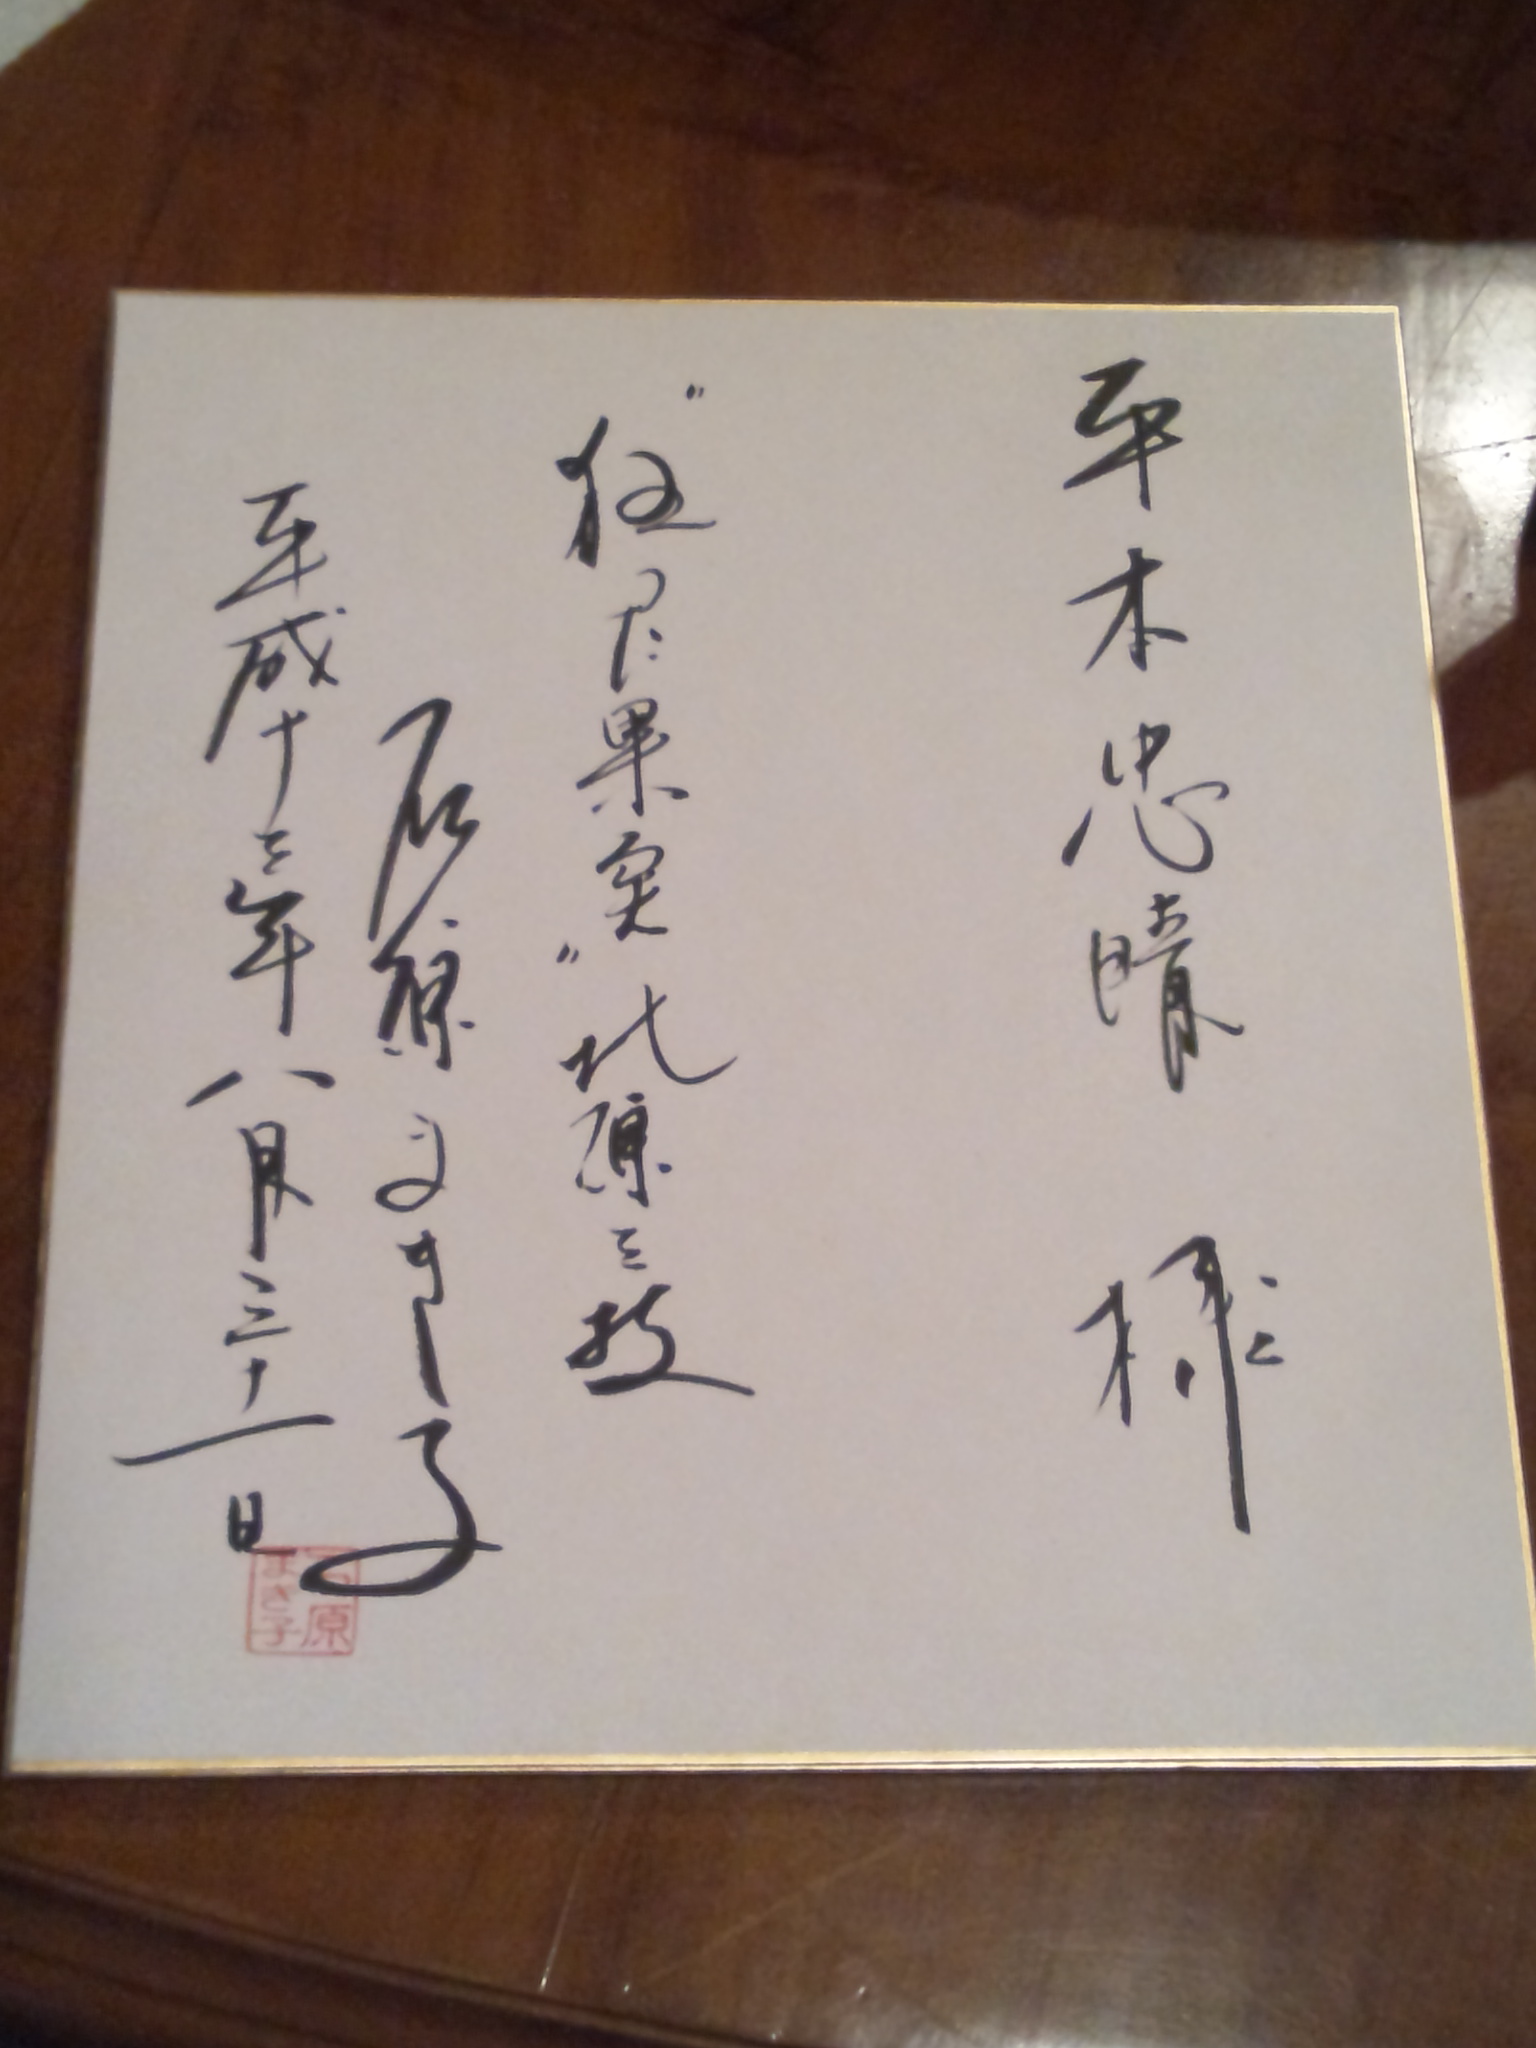 平本忠晴 様
"狂った果実" 北原三枝
石原まき子
平成十三年八月三十一日
石原
まき子